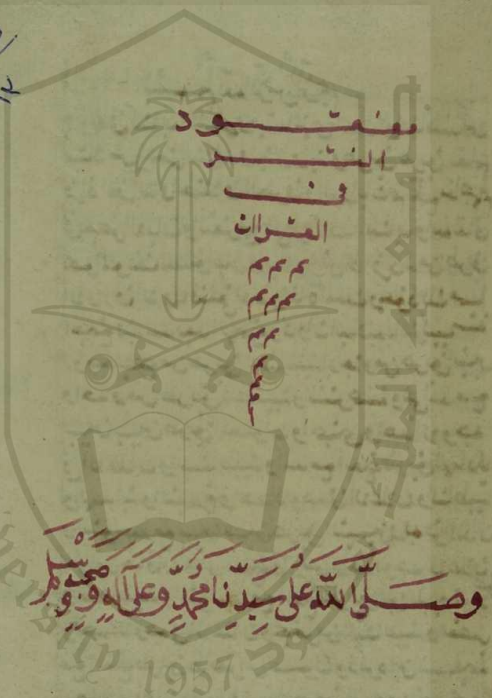 النشر
في
القراات
م م م
م م م
م م
وصلى الله على سيدنا محمد وعلى آله وصحبه وسلم
1957